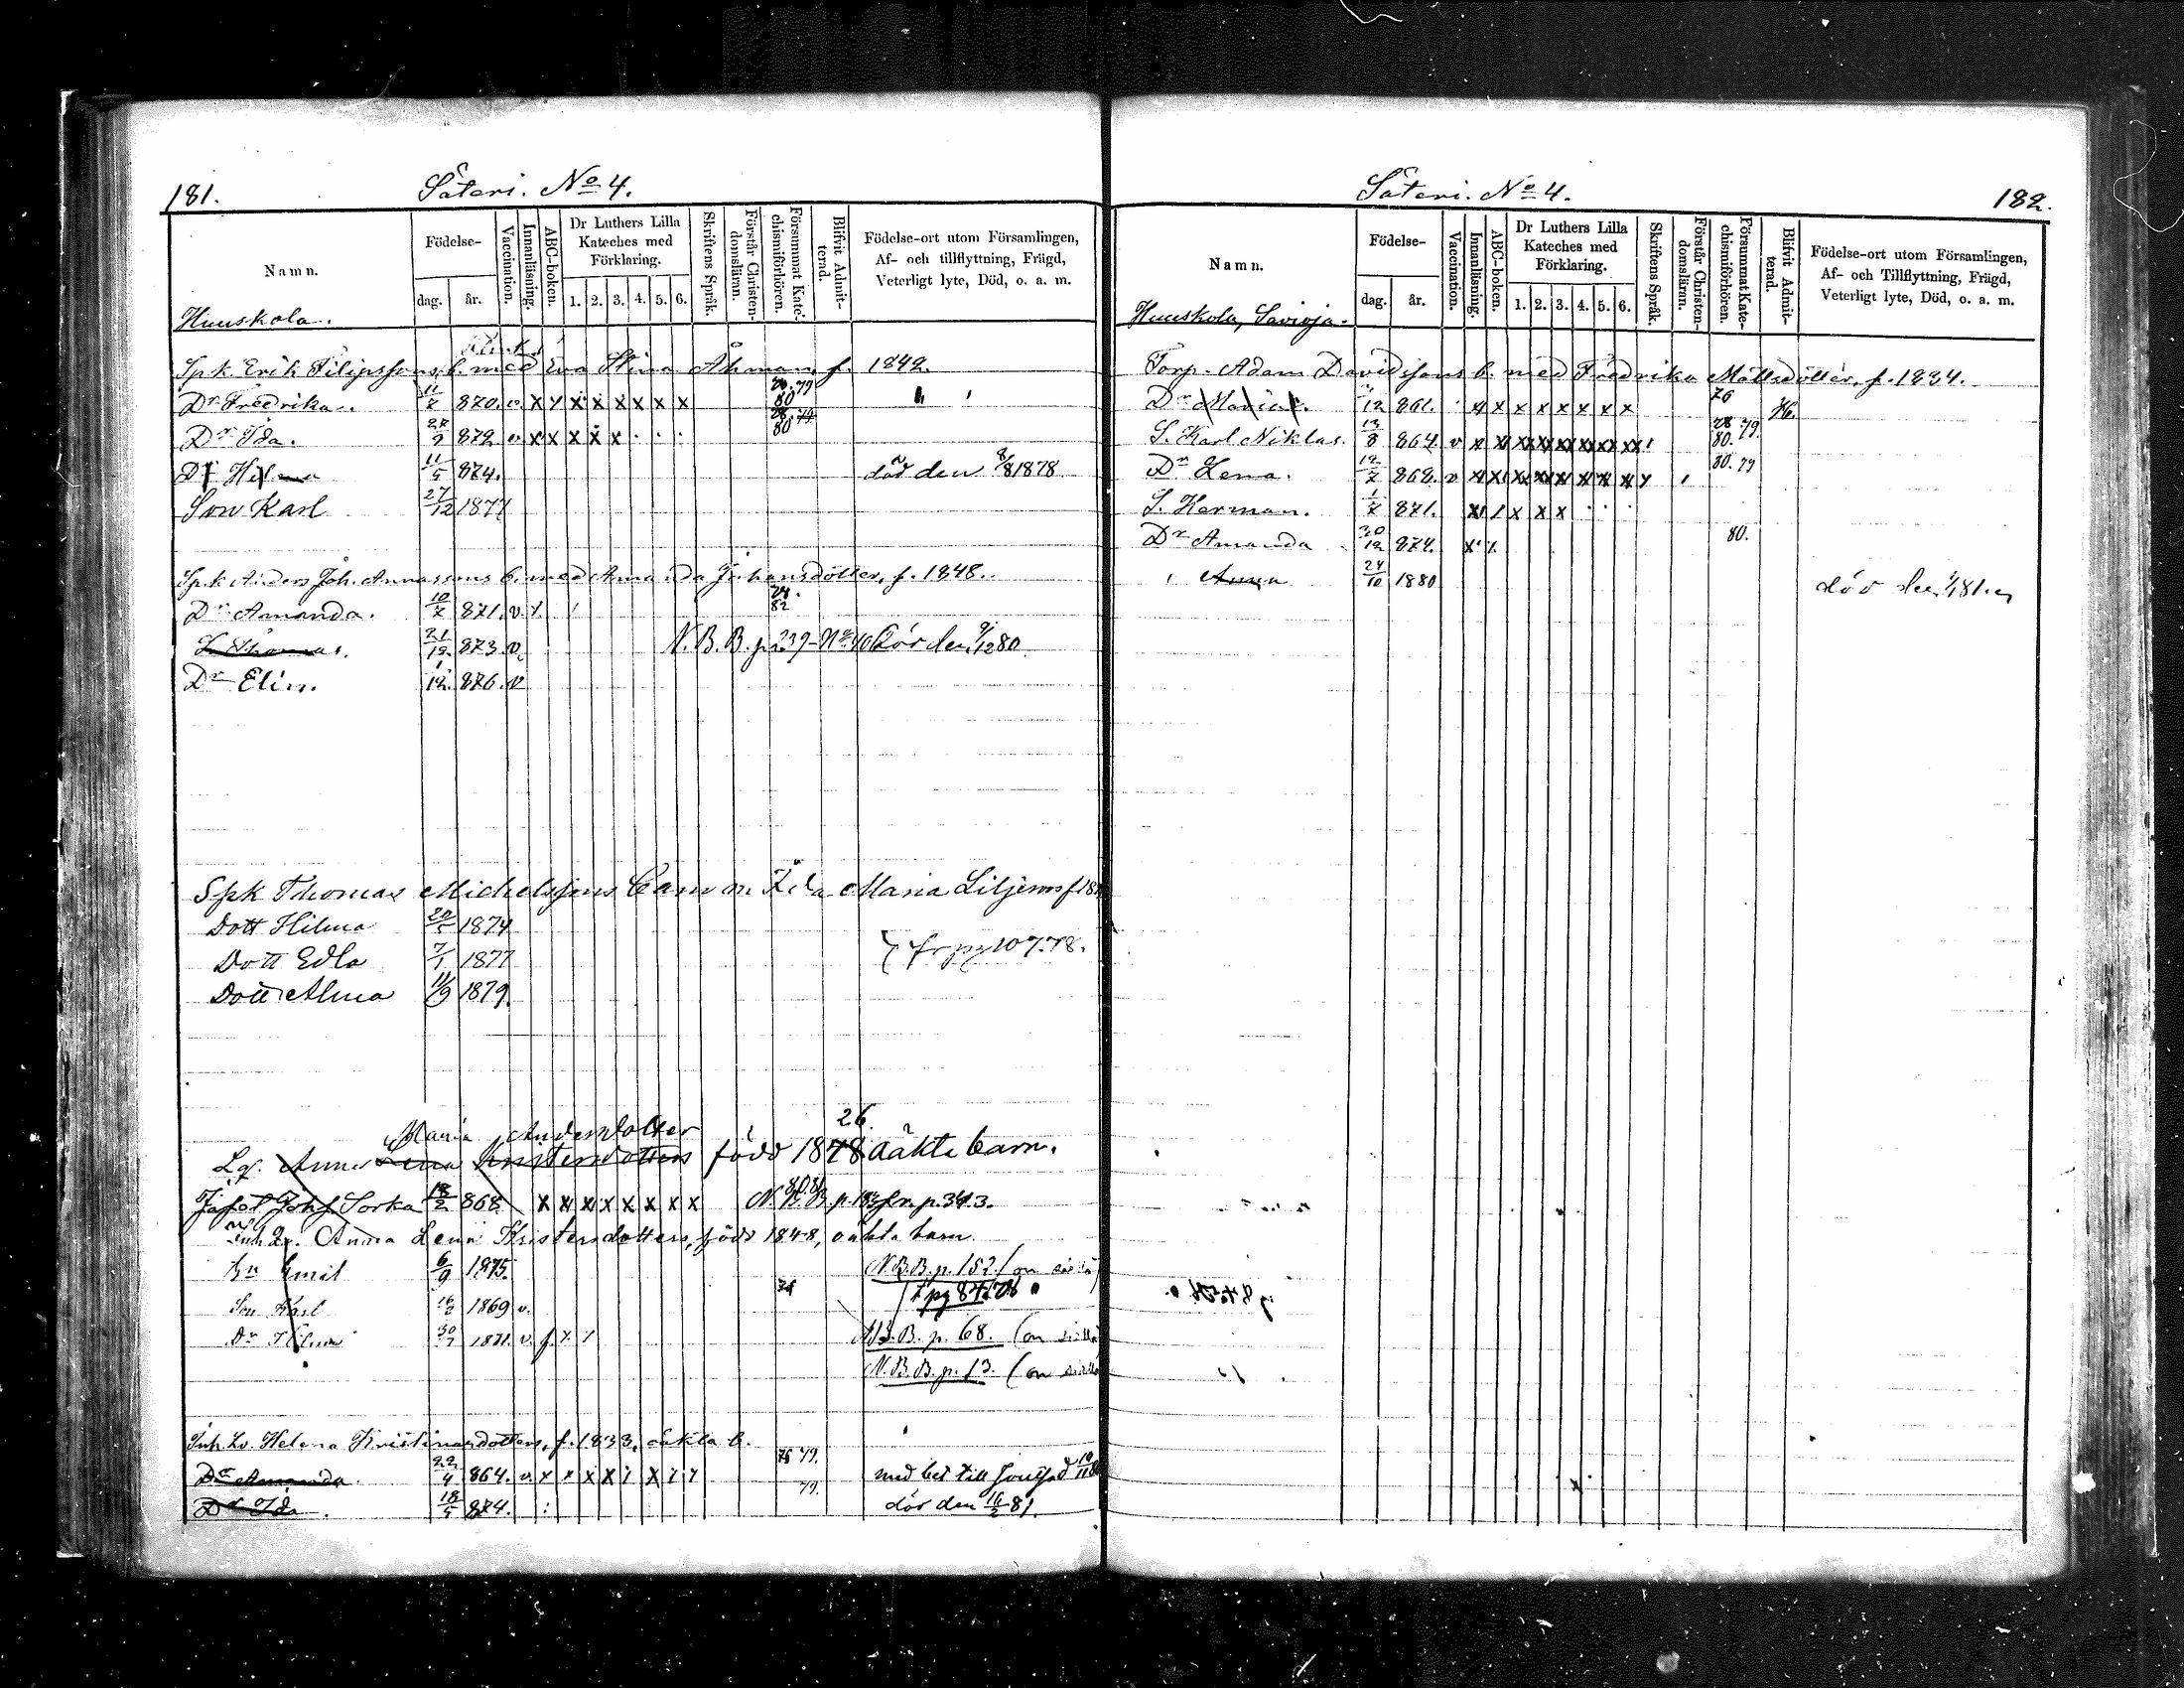 181.
Säteri. No 4.
Namn.
Födelse-
dag.
år.
Vaccination.
Innanläsning.
ABC-boken.
Dr Luthers Lilla Kateches med Förklaring.
1. 2. 3. 4. 5. 6.
Skriftens Språk.
Förstår Christen-domsläran.
Försummat Kate-chismiförhören.
Blifvit Admit-terad.
Födelse-ort utom Församlingen,
Af- och tillflyttning, Frägd,
Veterligt lyte, Död, o. a. m.
Huuskola.
Spk. Erik Filipssons b. med Eva Stina Åhman, f. 1842.
Dr Fredrika. 11/7 870. v. x x x x x x x x 79 80
Dr Ida. 27/9 872 v x x x x x . . . 78. 80
Dr Hilma 11/5 874. död den 8/8 1878
Son Karl 27/12 1877
Spk Anders Joh. Annassons b. med Amanda Johansdotter, f. 1848.
Dr Amanda. 10/7 871. v. 82
S. Thomas. 21/12 873. v. N. B. B. p. 239 - No 40 dör den 9/12 80
Dr Elin. 1/12. 876. v
Spk Thomas Michelssons barn m Ida Maria Liljeroos f 18
Dott Hilma 20/5 1874
Dott Edla 7/1 1877 } fr pg 107. 78.
Dott Alma 11/9 1879.
Maria Andersdotter 26.
Lq. Anna Lena Kristersdotters född 1848 oäkta barn.
Jafet Johf Sorka 18/2 868 x x x x x x x x 80 81 N. B. B. fr. p. 343.
Inh. Lq. Anna Lena Kristersdotters, född 1848, oäkta barn
Sn Emil 6/9 1875. N. B. B. p. 152. (on siellä)
Son Karl 16/2 1869 v. t pg 847 76
Dr Hilma 30/7 1871. v. N. B. B. p. 68. (on siellä
N. B. B. p. 13. (on siellä
Inh. Lo. Helena Kristinandotters, f. 1833, oäkta b.
Dr Amanda. 22/4 864. v. x x x x x 76 79. med bet till 10/11 80
Dr Ida. 18/5 874. 79. dör den 16/2 81.
Säteri. No 4.
182.
Namn.
Födelse-
dag.
år.
Vaccination.
Innanläsning.
ABC-boken.
Dr Luthers Lilla Kateches med Förklaring.
1. 2. 3. 4. 5. 6.
Skriftens Språk.
Förstår Christen-domsläran.
Försummat Kate-chismiförhören.
Blifvit Admit-terad.
Födelse-ort utom Församlingen,
Af- och Tillflyttning, Frägd,
Veterligt lyte, Död, o. a. m.
Huuskola, Savioja.
Torp. Adam Davidssons b. med Fredrika Mattsdotter, f. 1834.
Dr Maria. 12 861. x x x x x x x x 76
S. Karl Niklas. 13/8 864. v x x x x x x x x 78 79. 80.
Dr Lena. 12/7 868. v x x x x x x x x 80. 79
S. Herman. 1/7 871. x x x x . . .
Dr Amanda 20/12 874. x 80.
Anna 24/10 1880 dör den 81.